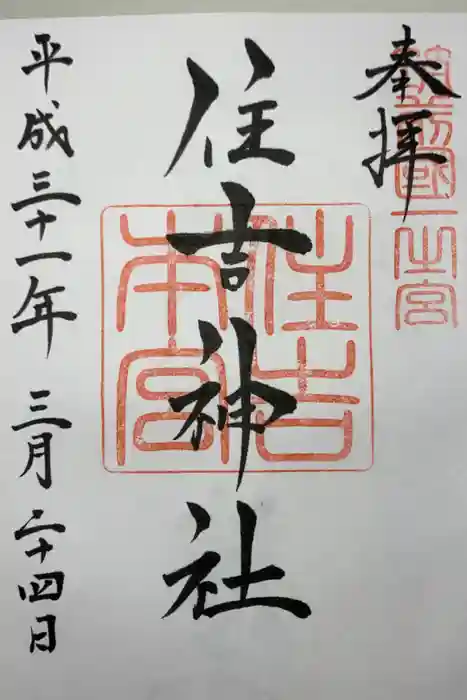 奉拝
筑前國一之宮
住吉神社
住吉
本宮
平成三十一年 三月 二十四日